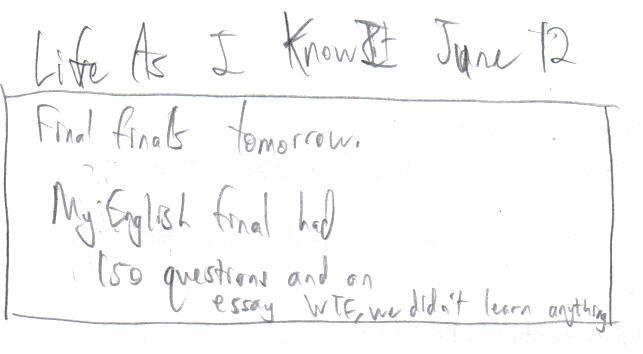 Life As I Know It June 12
Final finals tomorrow.
My English final had
150 questions and an
essay WTF, we didn't learn anything